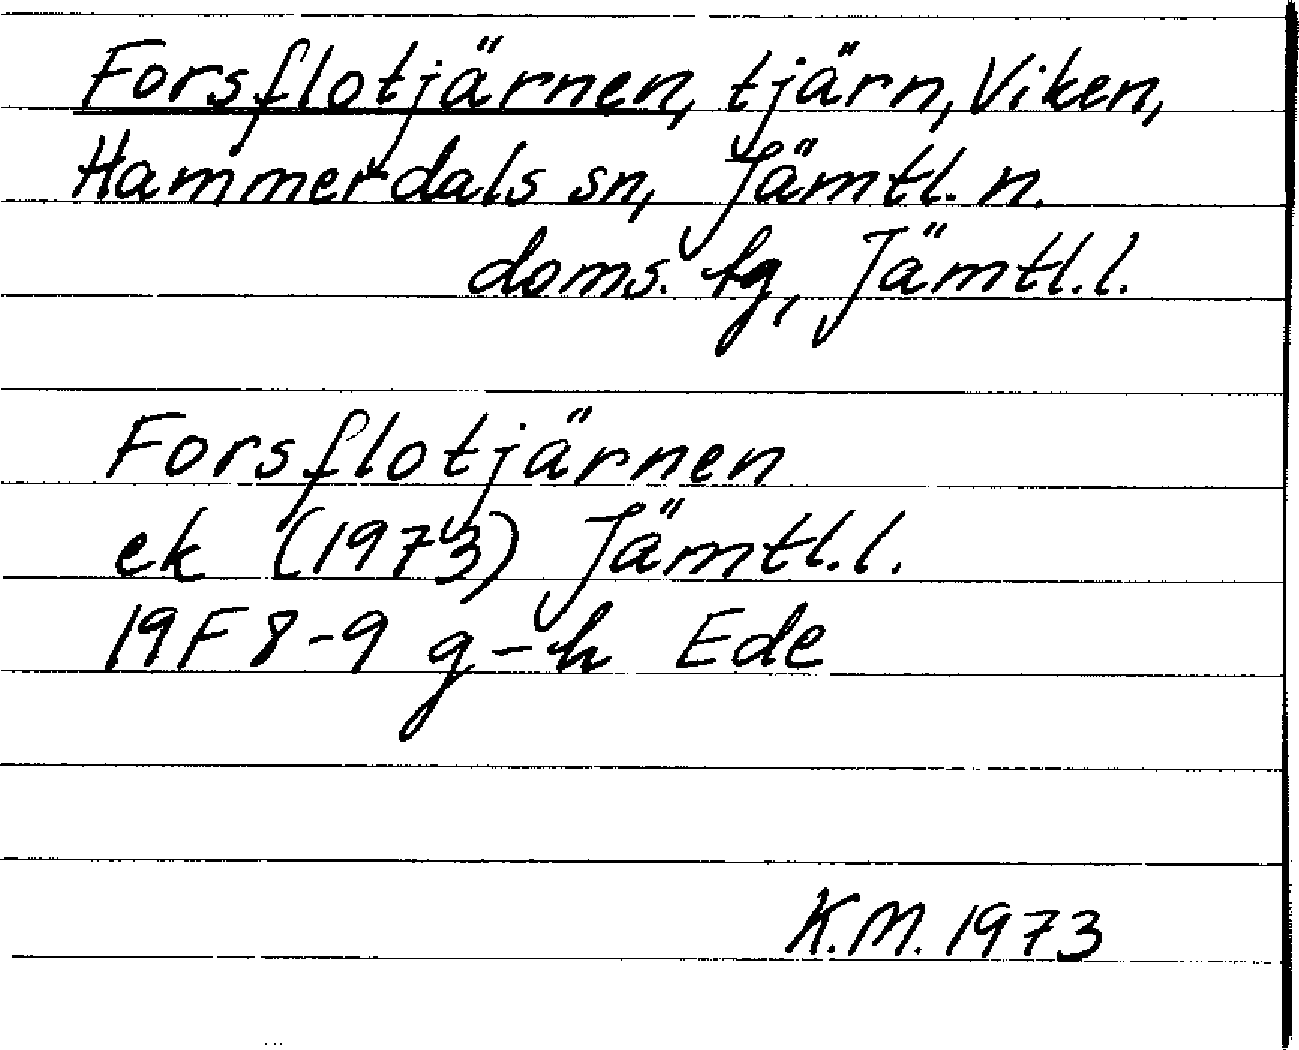 Forsflotjärnen, tjärn, Viken,
Hammerdals sn, Jämtl. n.
doms. tg, Jämtl. l.
Forsflotjärnen
ek (1973) Jämtl. l.
19F 8-9 g-h Ede
K.M. 1973